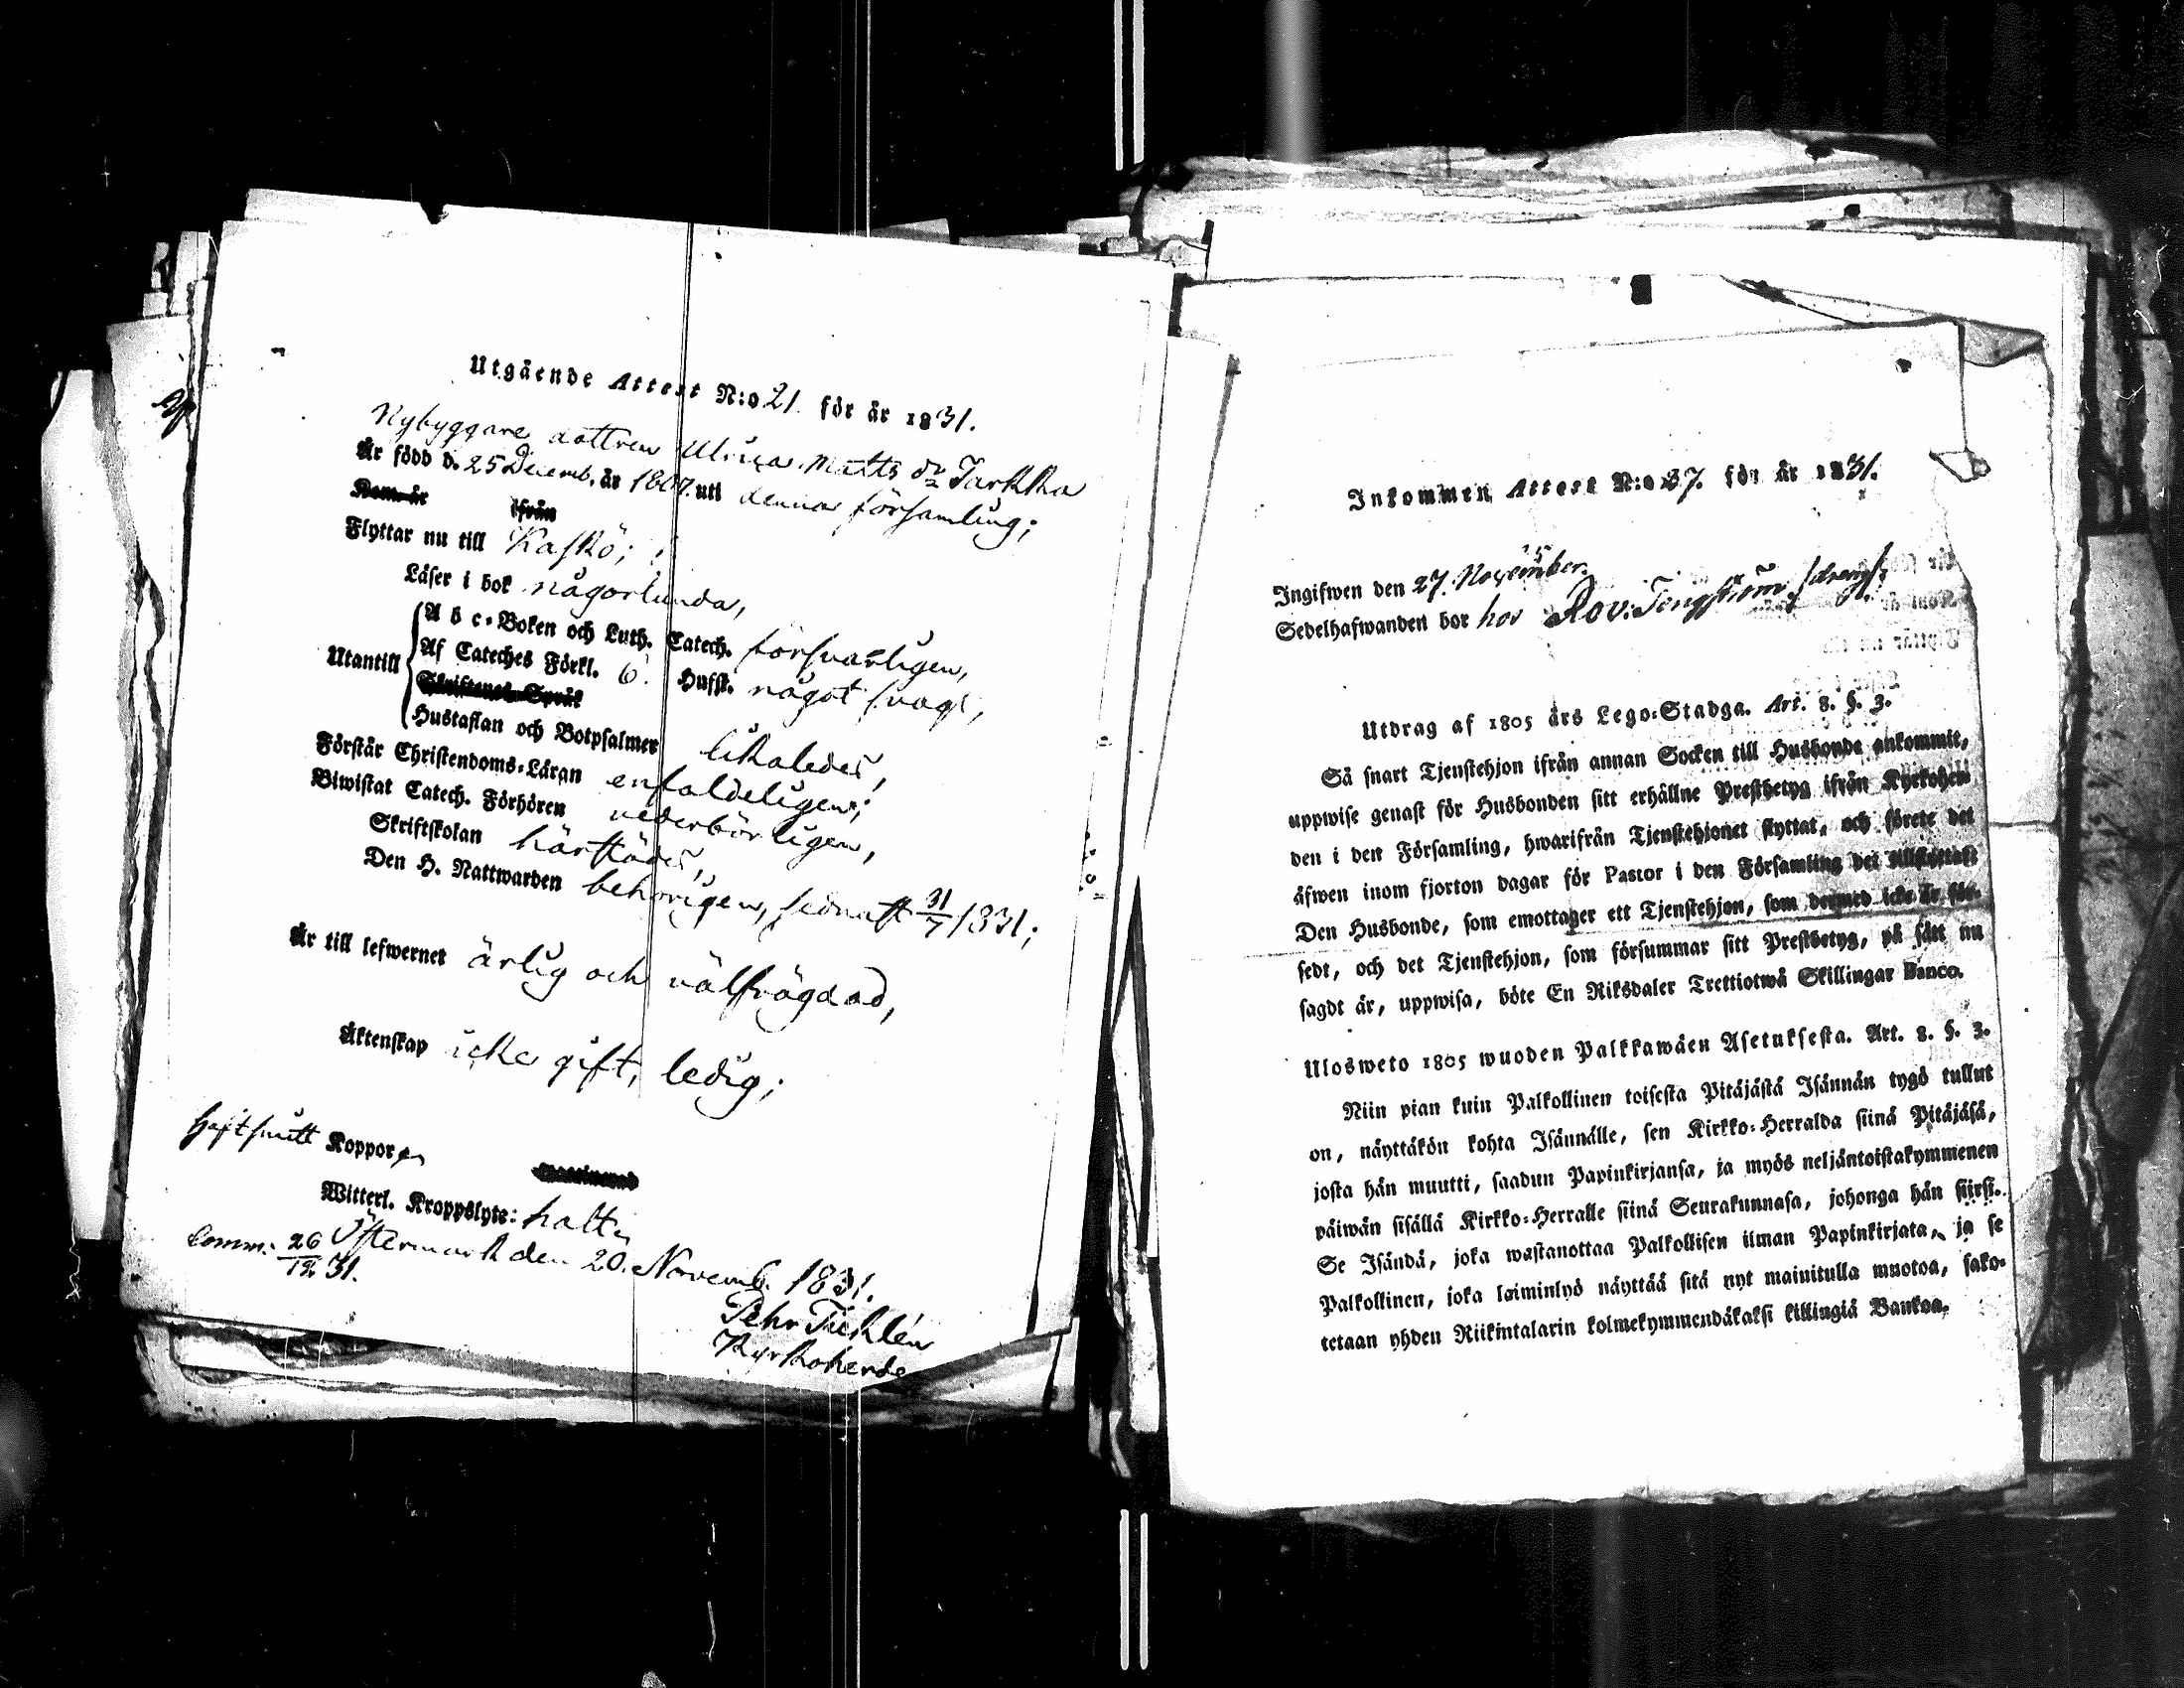 Utgående Attest N:o 21. för år 1831.
Nybyggare dottren Ulrica Matts dr Tarkka
Är född d. 25 Decemb. år 1807. uti denna församling;
Kom år ifrån
Flyttar nu till Kaskö;
Läser i bok någorlunda,
Utantill
A b c-Boken och Luth. Catech. försvarligen,
Af Cateches Förkl. 6. Hufst. något svagt,
Skriftenes Språk
Hustaflan och Botpsalmer likaledes,
Förstår Christendoms-Läran enfaldeligen;
Biwistat Catech. Förhören vederbörligen,
Skriftskolan härstädes,
Den H. Nattwarden behörigen, sednast 31/7 1831;
Är till lefwernet ärlig och välfrägdad,
Äktenskap icke gift, ledig;
Haft smitt Koppor
vaccinerad
Witterl. Kroppslyte: halt
Östermark den 20. Novemb. 1831.
Comm: 26/12 31.
Pehr
Kyrkoherde
Inkommen Attest N:o 37. för år 1831.
Ingifwen den 27. November.
Sedelhafwanden bor hos Rov. Tengström
Utdrag af 1805 års Lego-Stadga. Art. 8. §. 3.
Så snart Tjenstehjon ifrån annan Socken till Husbonde ankommit,
uppwise genast för Husbonden sitt erhållne Prestbetyg ifrån Kyrkoher-
den i den Församling, hwarifrån Tjenstehjonet flyttat, och förete det
äfwen inom fjorton dagar för Pastor i den Församling det tillflyttat.
Den Husbonde, som emottager ett Tjenstehjon, som dermed icke är för-
sedt, och det Tjenstehjon, som försummar sitt Prestbetyg, på sätt nu
sagdt är, uppwisa, böte En Riksdaler Trettiotwå Skillingar Banco.
Ulosweto 1805 wuoden Palkkawäen Asetuksesta. Art. 8. §. 3.
Niin pian kuin Palkollinen toisesta Pitäjästä Isännän tygö tullut
on, näyttäkön kohta Isännälle, sen Kirkko-Herralda siinä Pitäjäsä,
josta hän muutti, saadun Papinkirjansa, ja myös neljäntoistakymmenen
päiwän sisällä Kirkko-Herralle siinä Seurakunnasa, johonga hän siirsi.
Se Isändä, joka wastanottaa Palkollisen ilman Papinkirjata, ja se
Palkollinen, joka laiminlyö näyttää sitä nyt mainitulla muotoa, sako-
tetaan yhden Riikintalarin kolmekymmendäkaksi killingiä Bankoa.